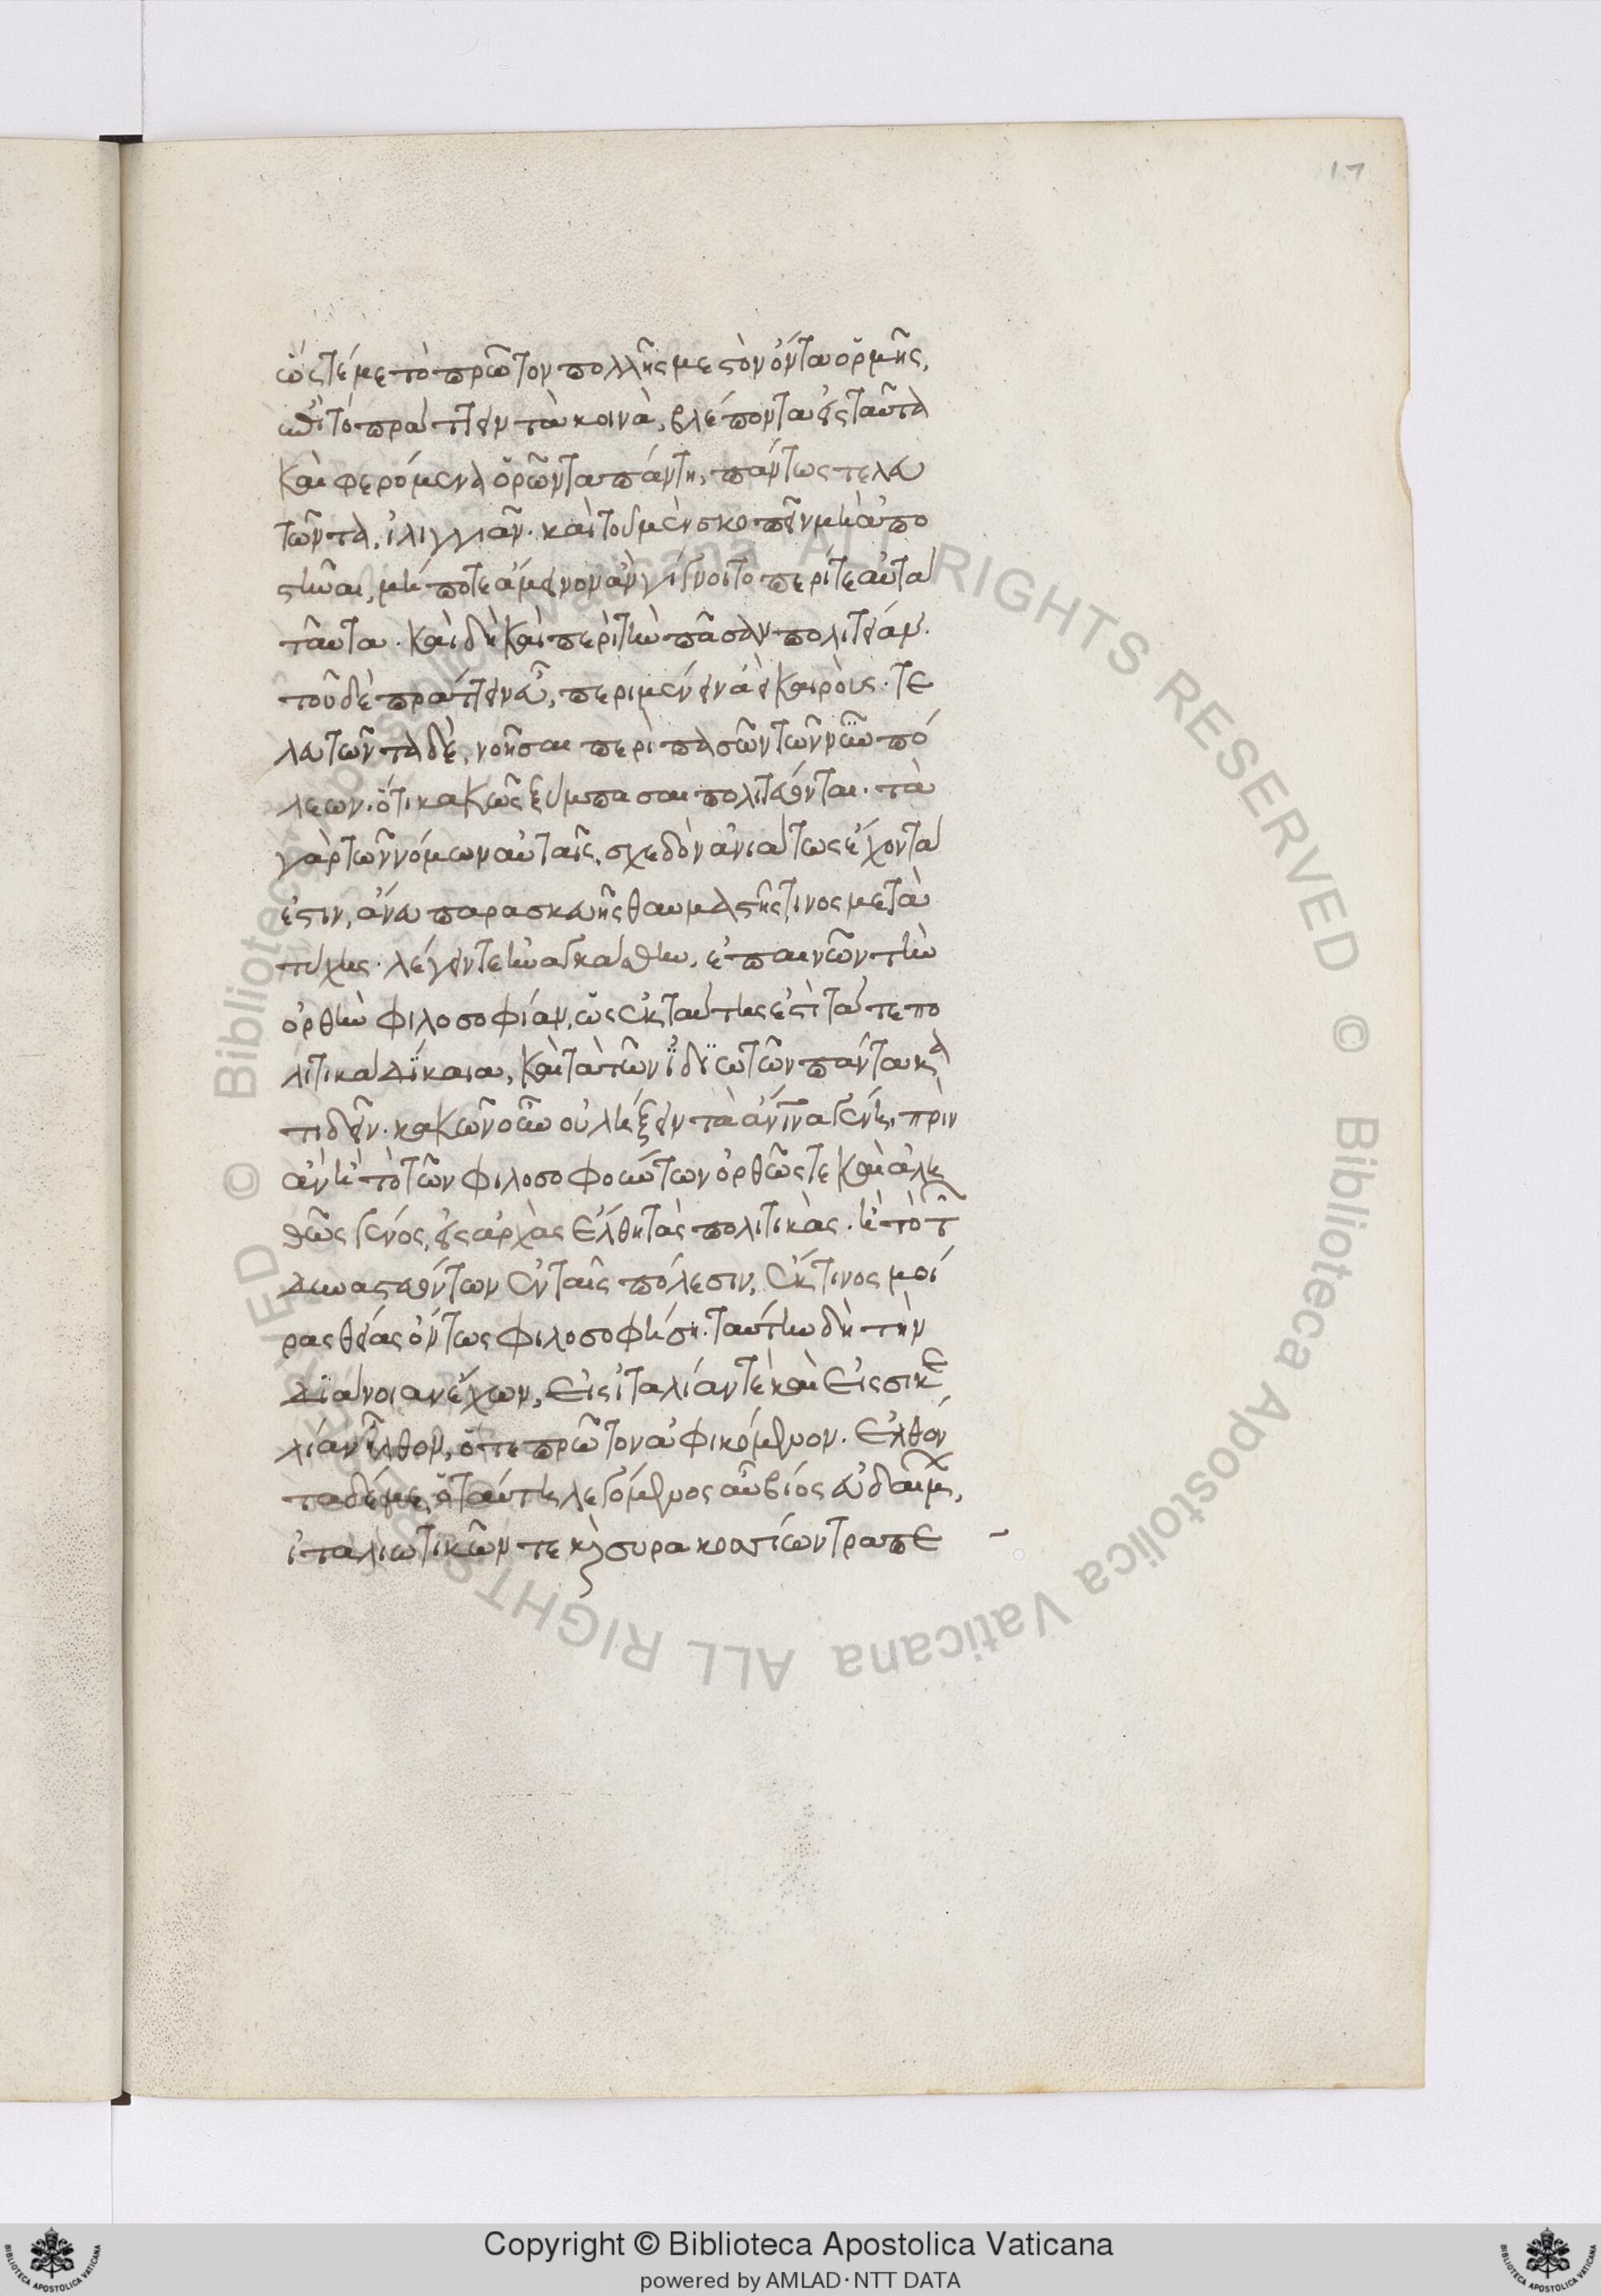 17
ὥστέ με τὸ πρῶτον πολλῆς μεστὸν ὄντα ὁρμῆς,
ἐπὶ τὸ πράττειν τὰ κοινὰ, βλέποντα εἰς ταῦτα
καὶ φερόμενα ὁρῶντα πάντη, πάντως τελευ
τῶντα, ἰλιγγιᾶν. καὶ τοῦ μὲν σκοπεῖν μὴ ἀπο
στῆναι, μή ποτε ἄμεινον ἂν γίγνοιτο περί τε αὐτὰ
ταῦτα. καὶ δὴ καὶ περὶ τὴν πᾶσαν πολιτείαν.
τοῦ δὲ πράττειν αὖ, περιμένειν ἀεὶ καιρούς. τε
λευτῶντα δὲ, νοῆσαι περὶ πασῶν τῶν νῦν πό
λεων. ὅτι κακῶς ξύμπασαι πολιτεύονται. τὰ
γὰρ τῶν νόμων αὐταῖς, σχεδὸν ἀνιάτως ἔχοντά
ἐστιν, ἄνευ παρασκευῆς θαυμαστῆς τινος μετὰ
τύχης. λέγειν τε ἠναγκάσθην, ἐπαινῶν τὴν
ὀρθὴν φιλοσοφίαν, ὡς ἐκ ταύτης ἐστὶ τά τε πο
λιτικὰ δίκαια, καὶ τὰ τῶν ἰδιωτῶν πάντα κα
τιδεῖν. κακῶν οὖν οὐ λήξειν τὰ ἀνῖνα γένη, πρὶν
ἂν ἢ τὸ τῶν φιλοσοφούντων ὀρθῶς τε καὶ ἀλη
θῶς γένος, εἰς ἀρχὰς ἔλθη τὰς πολιτικάς. ἢ τὸ τῶν
δυναστευόντων ἐν ταῖς πόλεσιν, ἔκ τινος μοί
ρας θείας ὄντως φιλοσοφήση. ταύτην δὴ τὴν
διάνοιαν ἔχων, εἰς ἰταλίαν τε καὶ εἰς σικε
λίαν ἦλθον, ὅτε πρῶτον ἀφικόμην. ἐλθόν
τα δέ με, ὁ ταύτη λεγόμενος αὖ βίος εὐδαίμων,
ἰταλιωτικῶν τε καὶ συρακοσίων τραπε
Copyright © Biblioteca Apostolica Vaticana
powered by AMLAD·NTT DATA